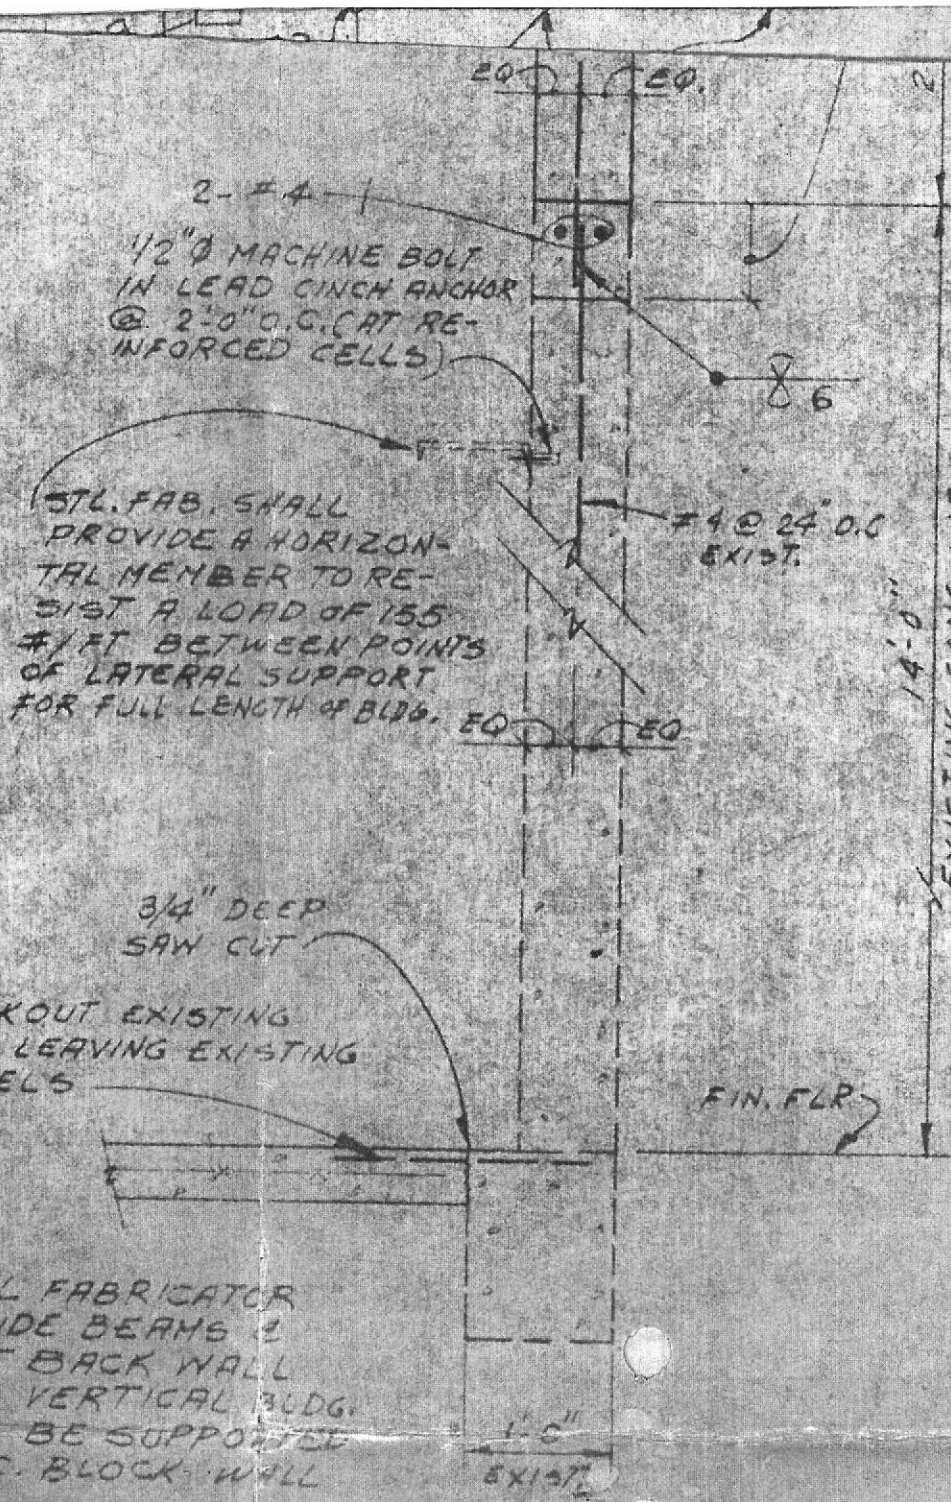 EQ EQ.
2
2-#4
1/2"Ø MACHINE BOLT
IN LEAD CINCH ANCHOR
@ 2'-0" O.C. (AT RE-
INFORCED CELLS)
6
STL. FAB. SHALL
PROVIDE A HORIZON-
TAL MEMBER TO RE-
SIST A LOAD OF 155
#/FT BETWEEN POINTS
OF LATERAL SUPPORT
FOR FULL LENGTH OF BLDG.
#4 @ 24" O.C
EXIST.
14'-0"
EQ EQ
3/4" DEEP
SAW CUT
KOUT EXISTING
LEAVING EXISTING
ELS
FIN. FLR
L FABRICATOR
IDE BEAMS &
T BACK WALL
VERTICAL BLDG.
BE SUPPORTED
C. BLOCK WALL
EXIST.